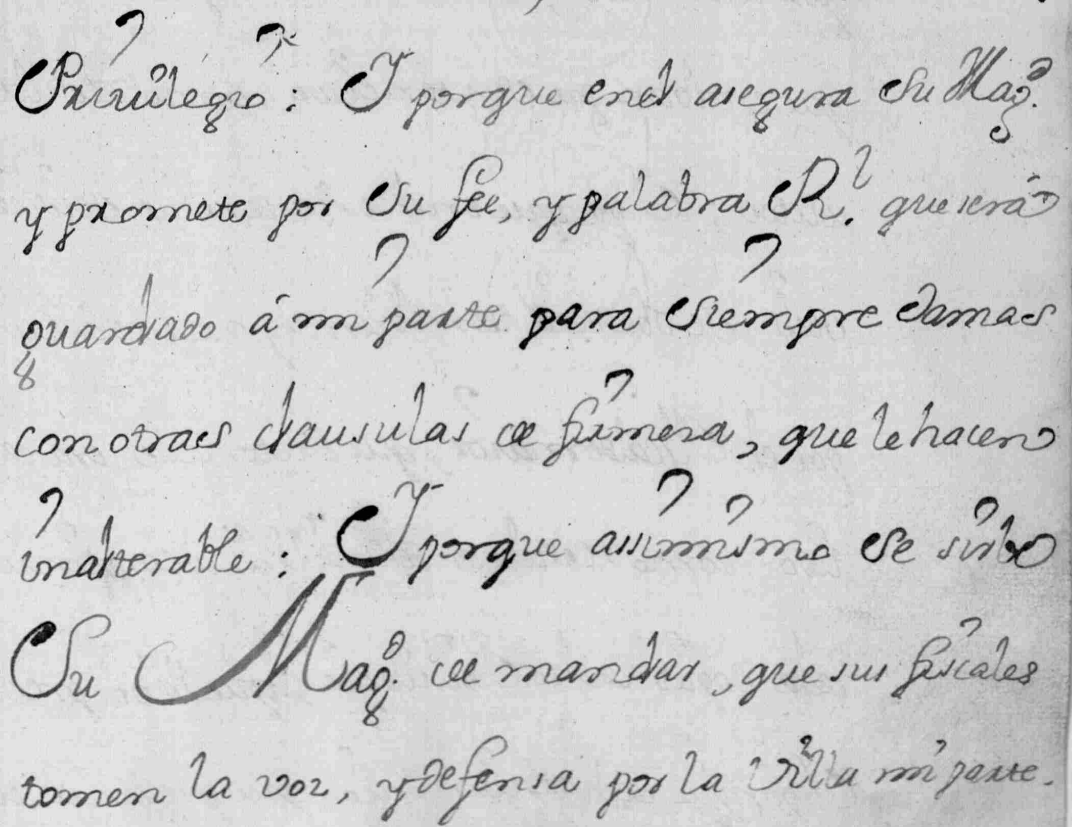 Privilegio: Y porque enel asegura Su Mag.d
y promete por Su fee, y palabra R.l que será
guardado á mi parte para siempre Jamas
con otras clausulas de firmeza, que le hacen
inalterable: Y porque assimismo se sirbe
Su Mag.d de mandar, que sus fiscales
tomen la voz, y defensa por la Villa mi parte.